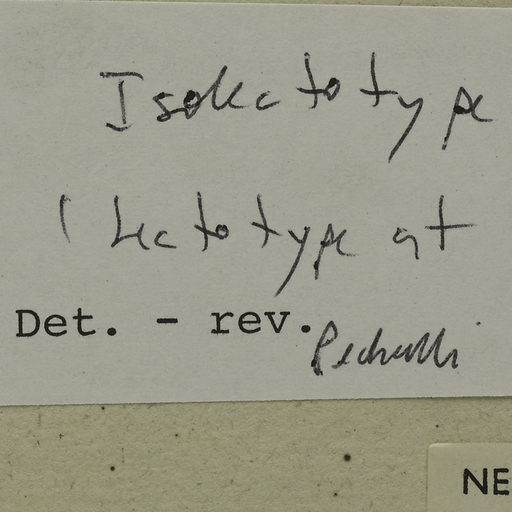 Isolectotype
( Lectotype at
Det. - rev.
NE